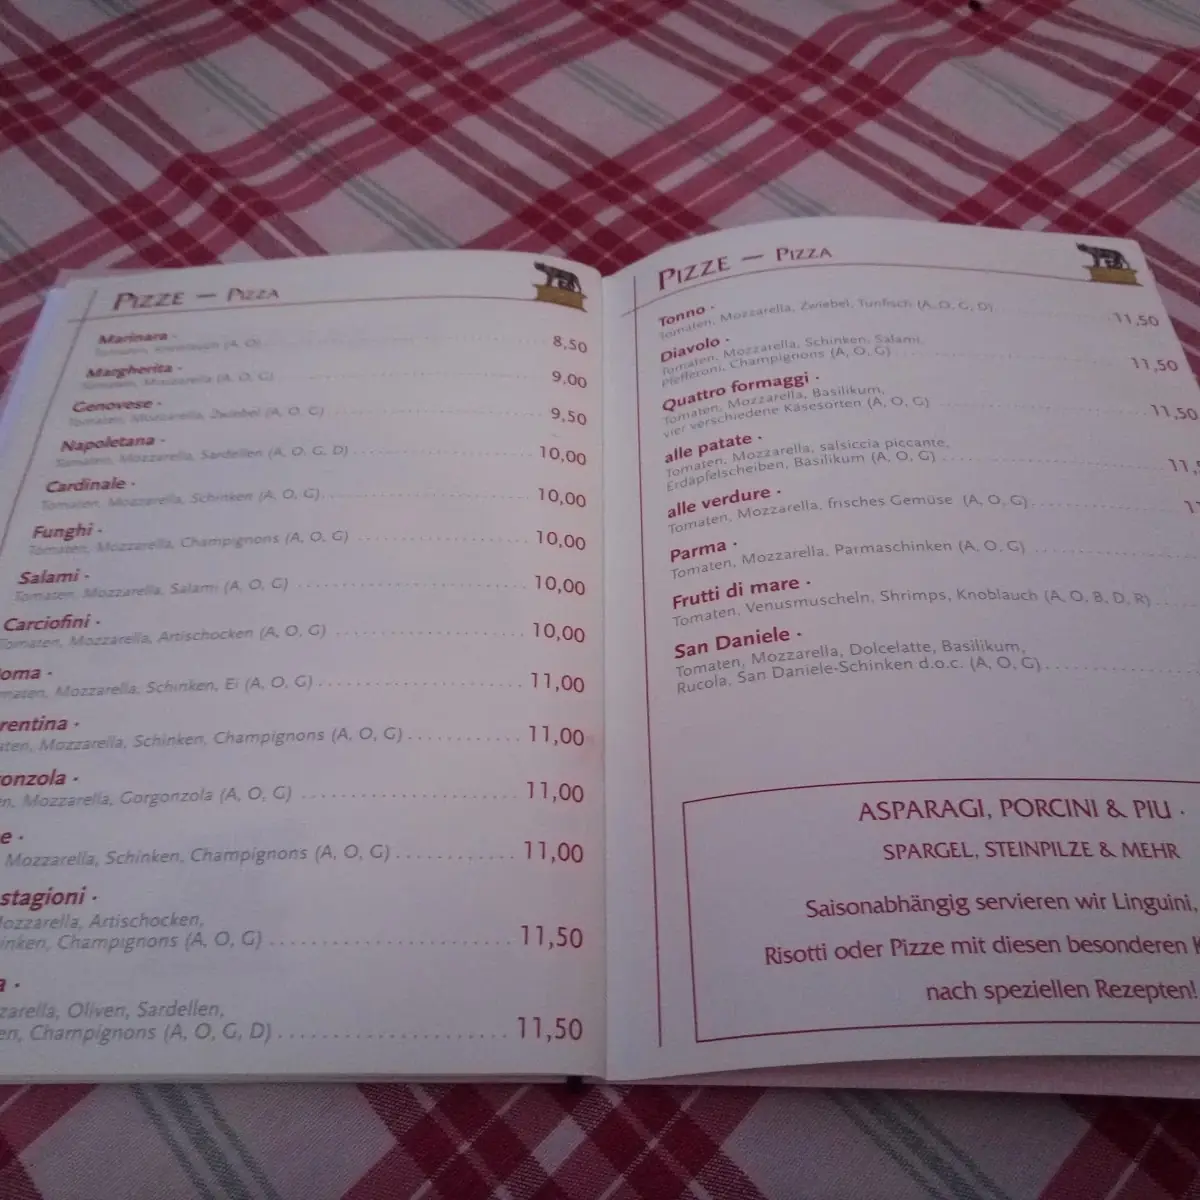 PIZZE — PIZZA
Marinara ·
Tomaten, (A, O) 8,50
Margherita ·
Tomaten, Mozzarella (A, O, G) 9,00
Genovese ·
Tomaten, Mozzarella, Zwiebel (A, O, G) 9,50
Napoletana ·
Tomaten, Mozzarella, Sardellen (A, O, G, D) 10,00
Cardinale ·
Tomaten, Mozzarella, Schinken (A, O, G) 10,00
Funghi ·
Tomaten, Mozzarella, Champignons (A, O, G) 10,00
Salami ·
Tomaten, Mozzarella, Salami (A, O, G) 10,00
Carciofini ·
Tomaten, Mozzarella, Artischocken (A, O, G) 10,00
oma ·
maten, Mozzarella, Schinken, Ei (A, O, G) 11,00
rentina ·
aten, Mozzarella, Schinken, Champignons (A, O, G) 11,00
onzola ·
en, Mozzarella, Gorgonzola (A, O, G) 11,00
e ·
Mozzarella, Schinken, Champignons (A, O, G) 11,00
stagioni ·
Mozzarella, Artischocken,
inken, Champignons (A, O, G) 11,50
a ·
zzarella, Oliven, Sardellen,
en, Champignons (A, O, G, D) 11,50
PIZZE — PIZZA
Tonno ·
Tomaten, Mozzarella, Zwiebel, Tunfisch (A, O, G, D) 11,50
Diavolo ·
Tomaten, Mozzarella, Schinken, Salami,
Pfefferoni, Champignons (A, O, G) 11,50
Quattro formaggi ·
Tomaten, Mozzarella, Basilikum,
vier verschiedene Käsesorten (A, O, G) 11,50
alle patate ·
Tomaten, Mozzarella, salsiccia piccante,
Erdäpfelscheiben, Basilikum (A, O, G) 11,
alle verdure ·
Tomaten, Mozzarella, frisches Gemüse (A, O, G)
Parma ·
Tomaten, Mozzarella, Parmaschinken (A, O, G)
Frutti di mare ·
Tomaten, Venusmuscheln, Shrimps, Knoblauch (A, O, B, D, R)
San Daniele ·
Tomaten, Mozzarella, Dolcelatte, Basilikum,
Rucola, San Daniele-Schinken d.o.c. (A, O, G)
ASPARAGI, PORCINI & PIU ·
SPARGEL, STEINPILZE & MEHR
Saisonabhängig servieren wir Linguini,
Risotti oder Pizze mit diesen besonderen
nach speziellen Rezepten!